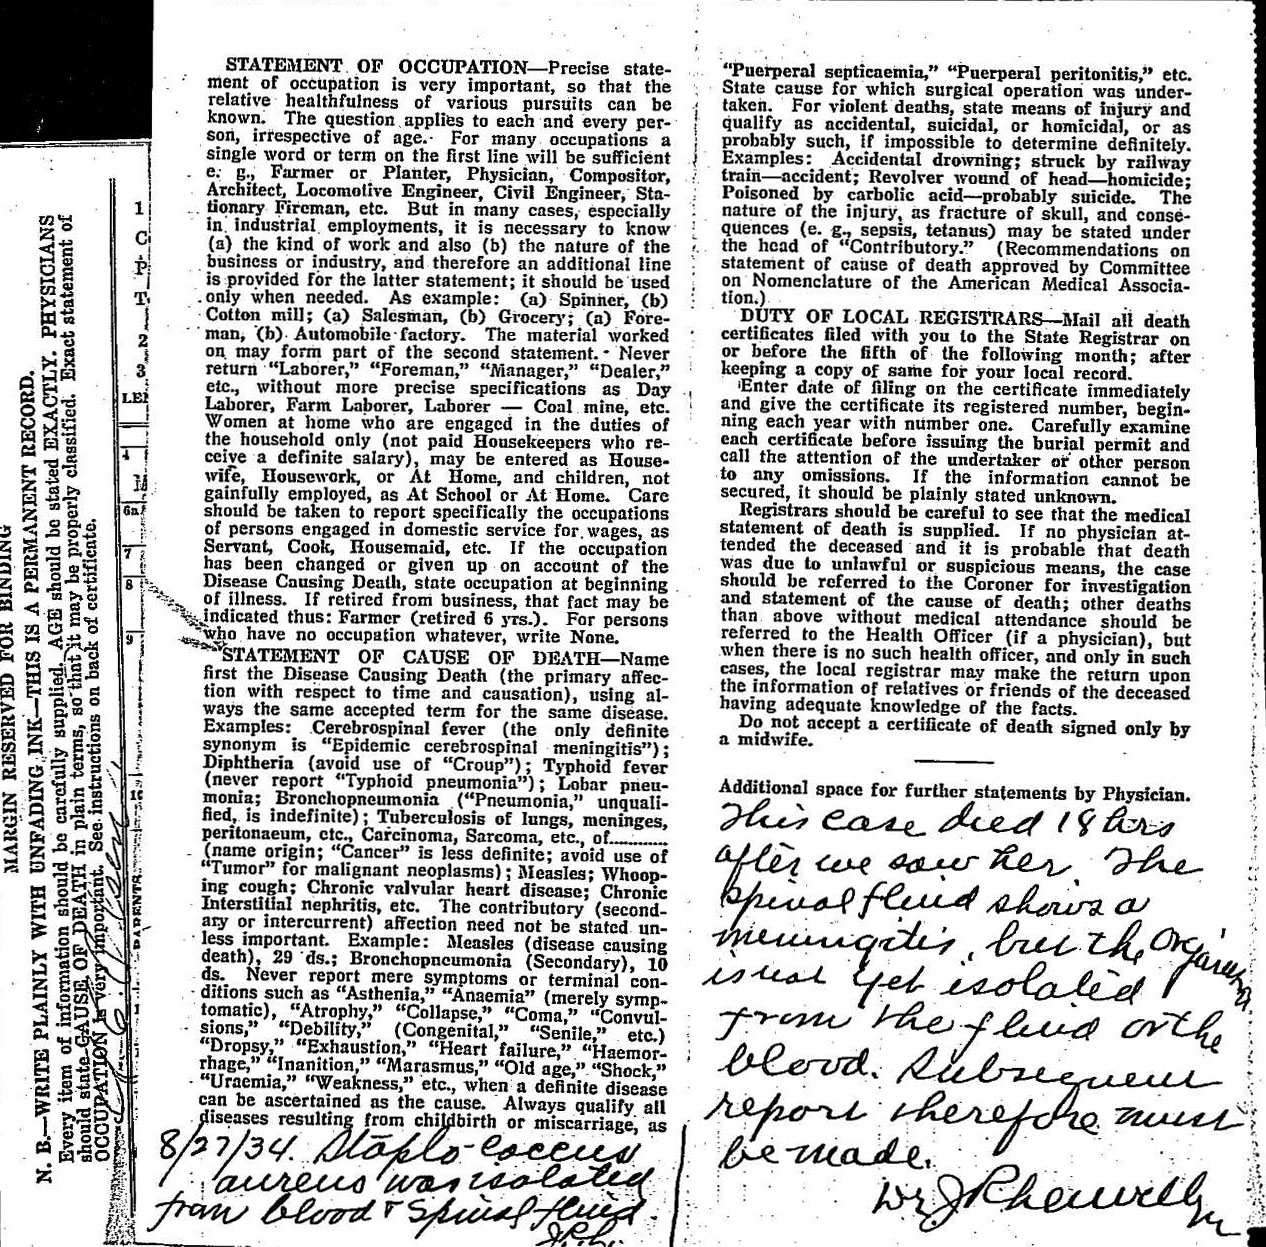 MARGIN RESERVED FOR BINDING
N. B.—WRITE PLAINLY WITH UNFADING INK—THIS IS A PERMANENT RECORD.
Every item of information should be carefully supplied. AGE should be stated EXACTLY. PHYSICIANS
should state CAUSE OF DEATH in plain terms, so that it may be properly classified. Exact statement of
OCCUPATION is very important. See instructions on back of certificate.
1
C
P
T
2
3
LE
4
6a
7
8
9
10
PARENTS
STATEMENT OF OCCUPATION—Precise state-
ment of occupation is very important, so that the
relative healthfulness of various pursuits can be
known. The question applies to each and every per-
son, irrespective of age. For many occupations a
single word or term on the first line will be sufficient
e. g., Farmer or Planter, Physician, Compositor,
Architect, Locomotive Engineer, Civil Engineer, Sta-
tionary Fireman, etc. But in many cases, especially
in industrial employments, it is necessary to know
(a) the kind of work and also (b) the nature of the
business or industry, and therefore an additional line
is provided for the latter statement; it should be used
only when needed. As example: (a) Spinner, (b)
Cotton mill; (a) Salesman, (b) Grocery; (a) Fore-
man, (b) Automobile factory. The material worked
on may form part of the second statement. Never
return "Laborer," "Foreman," "Manager," "Dealer,"
etc., without more precise specifications as Day
Laborer, Farm Laborer, Laborer — Coal mine, etc.
Women at home who are engaged in the duties of
the household only (not paid Housekeepers who re-
ceive a definite salary), may be entered as House-
wife, Housework, or At Home, and children, not
gainfully employed, as At School or At Home. Care
should be taken to report specifically the occupations
of persons engaged in domestic service for wages, as
Servant, Cook, Housemaid, etc. If the occupation
has been changed or given up on account of the
Disease Causing Death, state occupation at beginning
of illness. If retired from business, that fact may be
indicated thus: Farmer (retired 6 yrs.). For persons
who have no occupation whatever, write None.
STATEMENT OF CAUSE OF DEATH—Name
first the Disease Causing Death (the primary affec-
tion with respect to time and causation), using al-
ways the same accepted term for the same disease.
Examples: Cerebrospinal fever (the only definite
synonym is "Epidemic cerebrospinal meningitis");
Diphtheria (avoid use of "Croup"); Typhoid fever
(never report "Typhoid pneumonia"); Lobar pneu-
monia; Bronchopneumonia ("Pneumonia," unquali-
fied, is indefinite); Tuberculosis of lungs, meninges,
peritonaeum, etc., Carcinoma, Sarcoma, etc., of............
(name origin; "Cancer" is less definite; avoid use of
"Tumor" for malignant neoplasms); Measles; Whoop-
ing cough; Chronic valvular heart disease; Chronic
Interstitial nephritis, etc. The contributory (second-
ary or intercurrent) affection need not be stated un-
less important. Example: Measles (disease causing
death), 29 ds.; Bronchopneumonia (Secondary), 10
ds. Never report mere symptoms or terminal con-
ditions such as "Asthenia," "Anaemia" (merely symp-
tomatic), "Atrophy," "Collapse," "Coma," "Convul-
sions," "Debility," (Congenital," "Senile," etc.)
"Dropsy," "Exhaustion," "Heart failure," "Haemor-
rhage," "Inanition," "Marasmus," "Old age," "Shock,"
"Uraemia," "Weakness," etc., when a definite disease
can be ascertained as the cause. Always qualify all
diseases resulting from childbirth or miscarriage, as
8/27/34. Staphlo-coccus
aureus was isolated
from blood & spinal fluid.
"Puerperal septicaemia," "Puerperal peritonitis," etc.
State cause for which surgical operation was under-
taken. For violent deaths, state means of injury and
qualify as accidental, suicidal, or homicidal, or as
probably such, if impossible to determine definitely.
Examples: Accidental drowning; struck by railway
train—accident; Revolver wound of head—homicide;
Poisoned by carbolic acid—probably suicide. The
nature of the injury, as fracture of skull, and conse-
quences (e. g., sepsis, tetanus) may be stated under
the head of "Contributory." (Recommendations on
statement of cause of death approved by Committee
on Nomenclature of the American Medical Associa-
tion.)
DUTY OF LOCAL REGISTRARS—Mail all death
certificates filed with you to the State Registrar on
or before the fifth of the following month; after
keeping a copy of same for your local record.
Enter date of filing on the certificate immediately
and give the certificate its registered number, begin-
ning each year with number one. Carefully examine
each certificate before issuing the burial permit and
call the attention of the undertaker or other person
to any omissions. If the information cannot be
secured, it should be plainly stated unknown.
Registrars should be careful to see that the medical
statement of death is supplied. If no physician at-
tended the deceased and it is probable that death
was due to unlawful or suspicious means, the case
should be referred to the Coroner for investigation
and statement of the cause of death; other deaths
than above without medical attendance should be
referred to the Health Officer (if a physician), but
when there is no such health officer, and only in such
cases, the local registrar may make the return upon
the information of relatives or friends of the deceased
having adequate knowledge of the facts.
Do not accept a certificate of death signed only by
a midwife.
Additional space for further statements by Physician.
This case died 18 hrs
after we saw her. The
spinal fluid shows a
meningitis, but the organism
is not yet isolated
from the fluid or the
blood. Subsequent
report therefore must
be made.